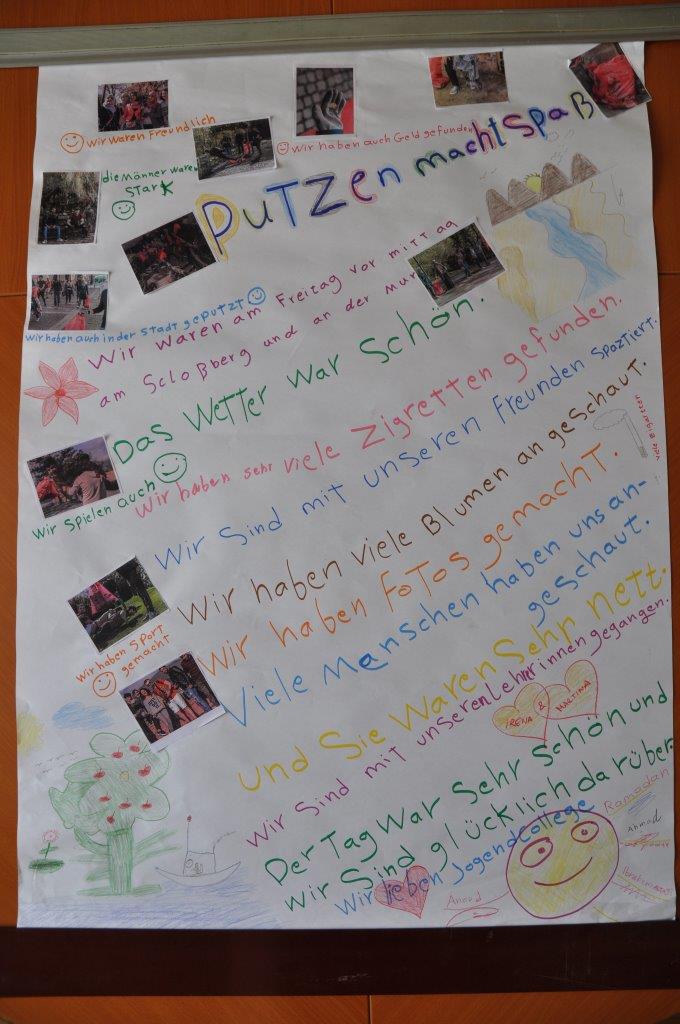 wir waren Freundlich
wir haben auch Geld gefunden
die Männer waren
STark
PuTZen machtSpaß
wir haben auch in der Stadt geputzt
Wir waren am Freitag vor mittag
am Scloßberg und an der mur
Das Wetter war Schön.
wir spielen auch
Wir haben sehr viele Zigretten gefunden.
viele Zigaretten
Wir Sind mit unseren Freunden Spaztiert.
Wir haben viele Blumen an geschaut.
Wir haben FoTos gemachT.
wir haben SPort
gemacht
Viele Manschen haben uns an-
geschaut.
und Sie Waren Sehr nett.
Wir Sind mit unserenLehrerinnen gegangen.
IRENA & MARTINA
Der Tag War Sehr Schön und
wir Sind glücklich darüber
Wir lieben JogendCollege
Ramadan
Ahmad